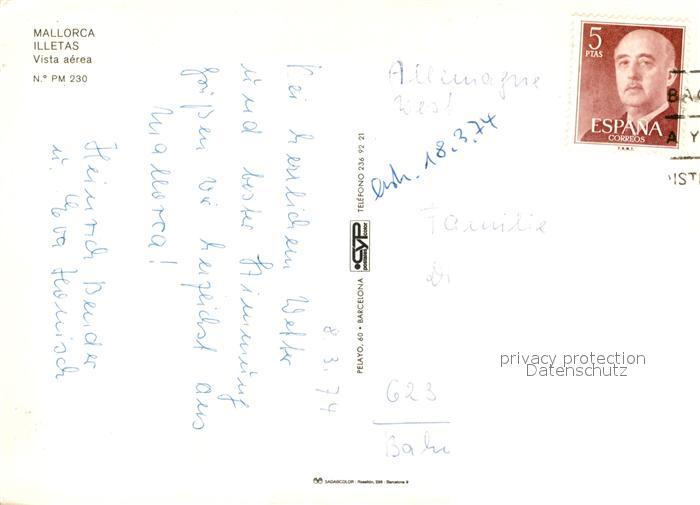 MALLORCA
ILLETAS
Vista aérea
N.º PM 230
8.3.74
Bei herrlichem Wetter
und bester Stimmung
grüßen wir herzlichst aus
Mallorca!
Heinrich Bender
u. Eva Hanisch
PELAYO, 60 • BARCELONA
CYP
TELÉFONO 236 92 21
Allemagne
West
18.3.74
Familie
Dr
623
5
PTAS
ESPAÑA
CORREOS
F.N.M.T.
privacy protection
Datenschutz
SADAGCOLOR - Rosellón, 298 - Barcelona 9